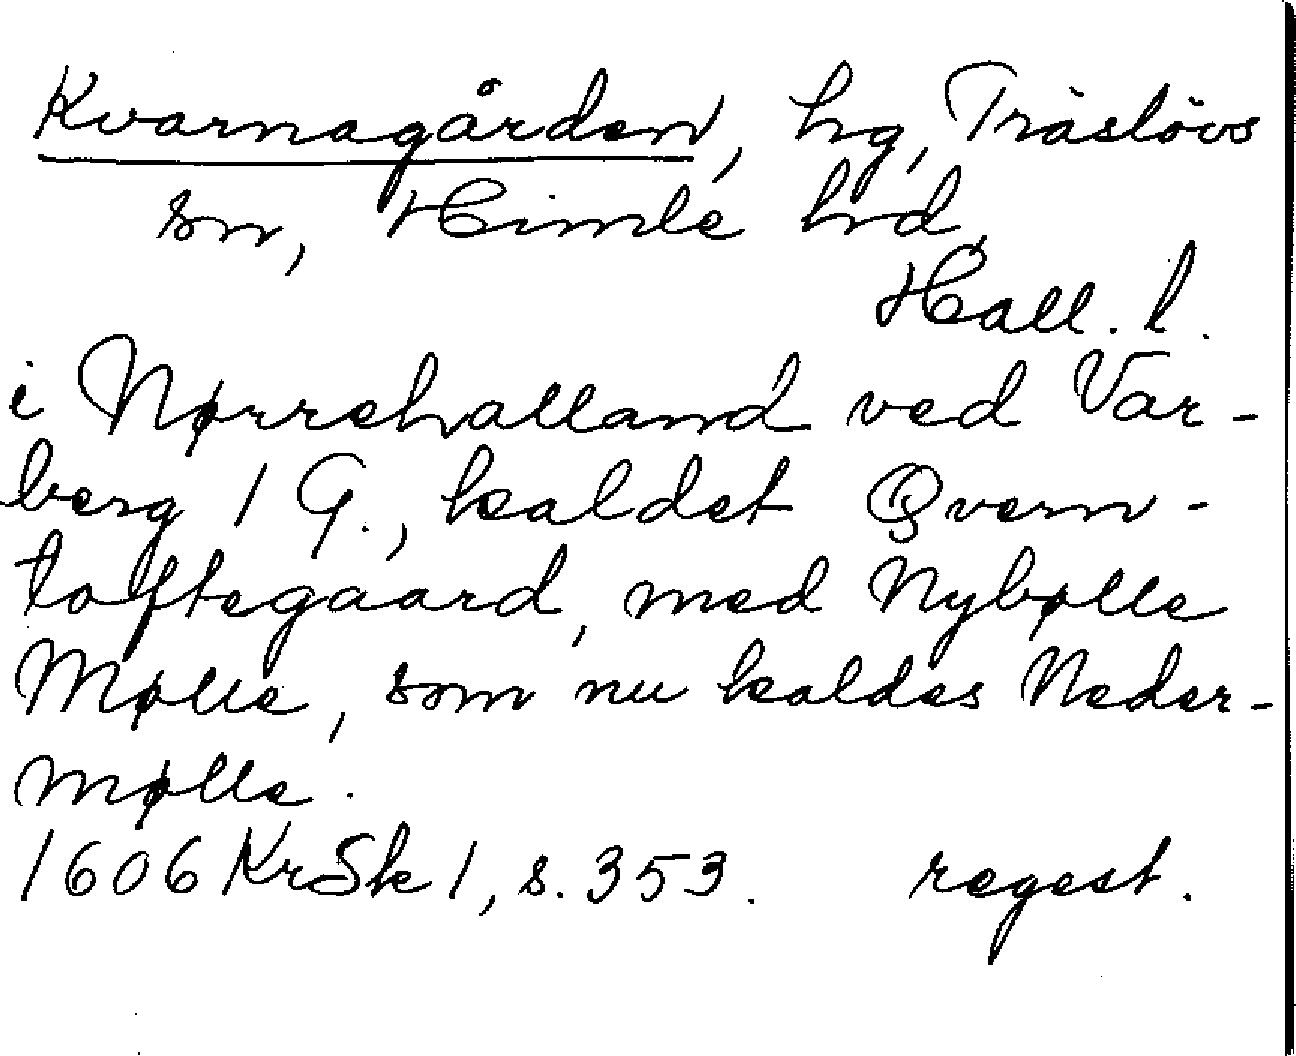 Kvarnagården, hg, Träslövs
sn, Himle hd,
Hall. l.
i Nørrehalland ved Var-
berg 1 G., kaldet Qvern-
toftegaard, med Nybølle
Mølle, som nu kaldes Neder-
mølle.
1606 KrSk 1, s. 353. regest.